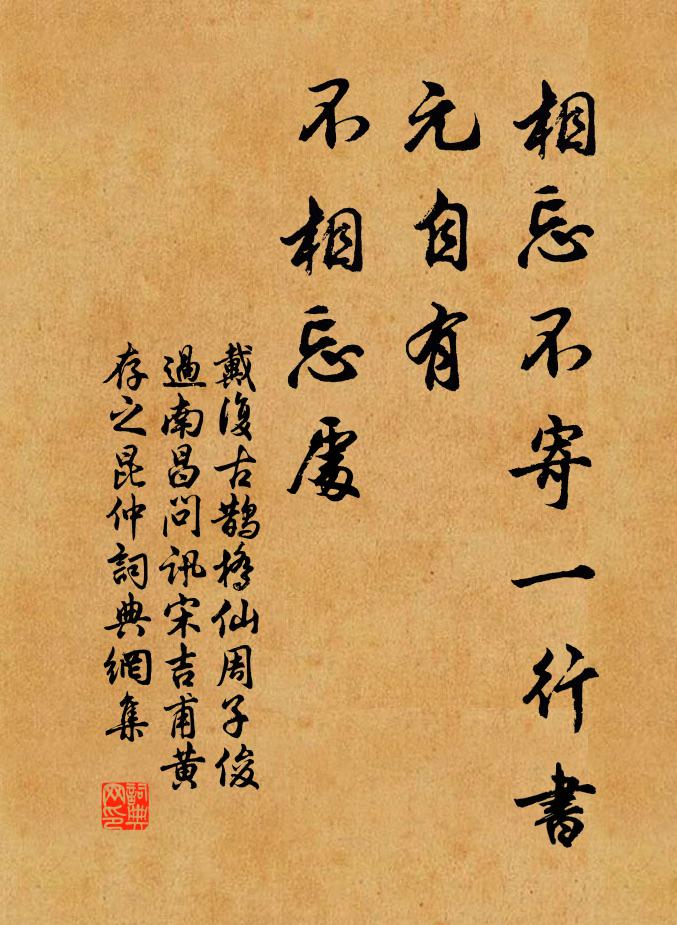 相忘不寄一行書
元自有
不相忘處
戴復古鵲橋仙周子俊
過南昌問訊宋吉甫黄
存之昆仲詞典網集
詞典
网印